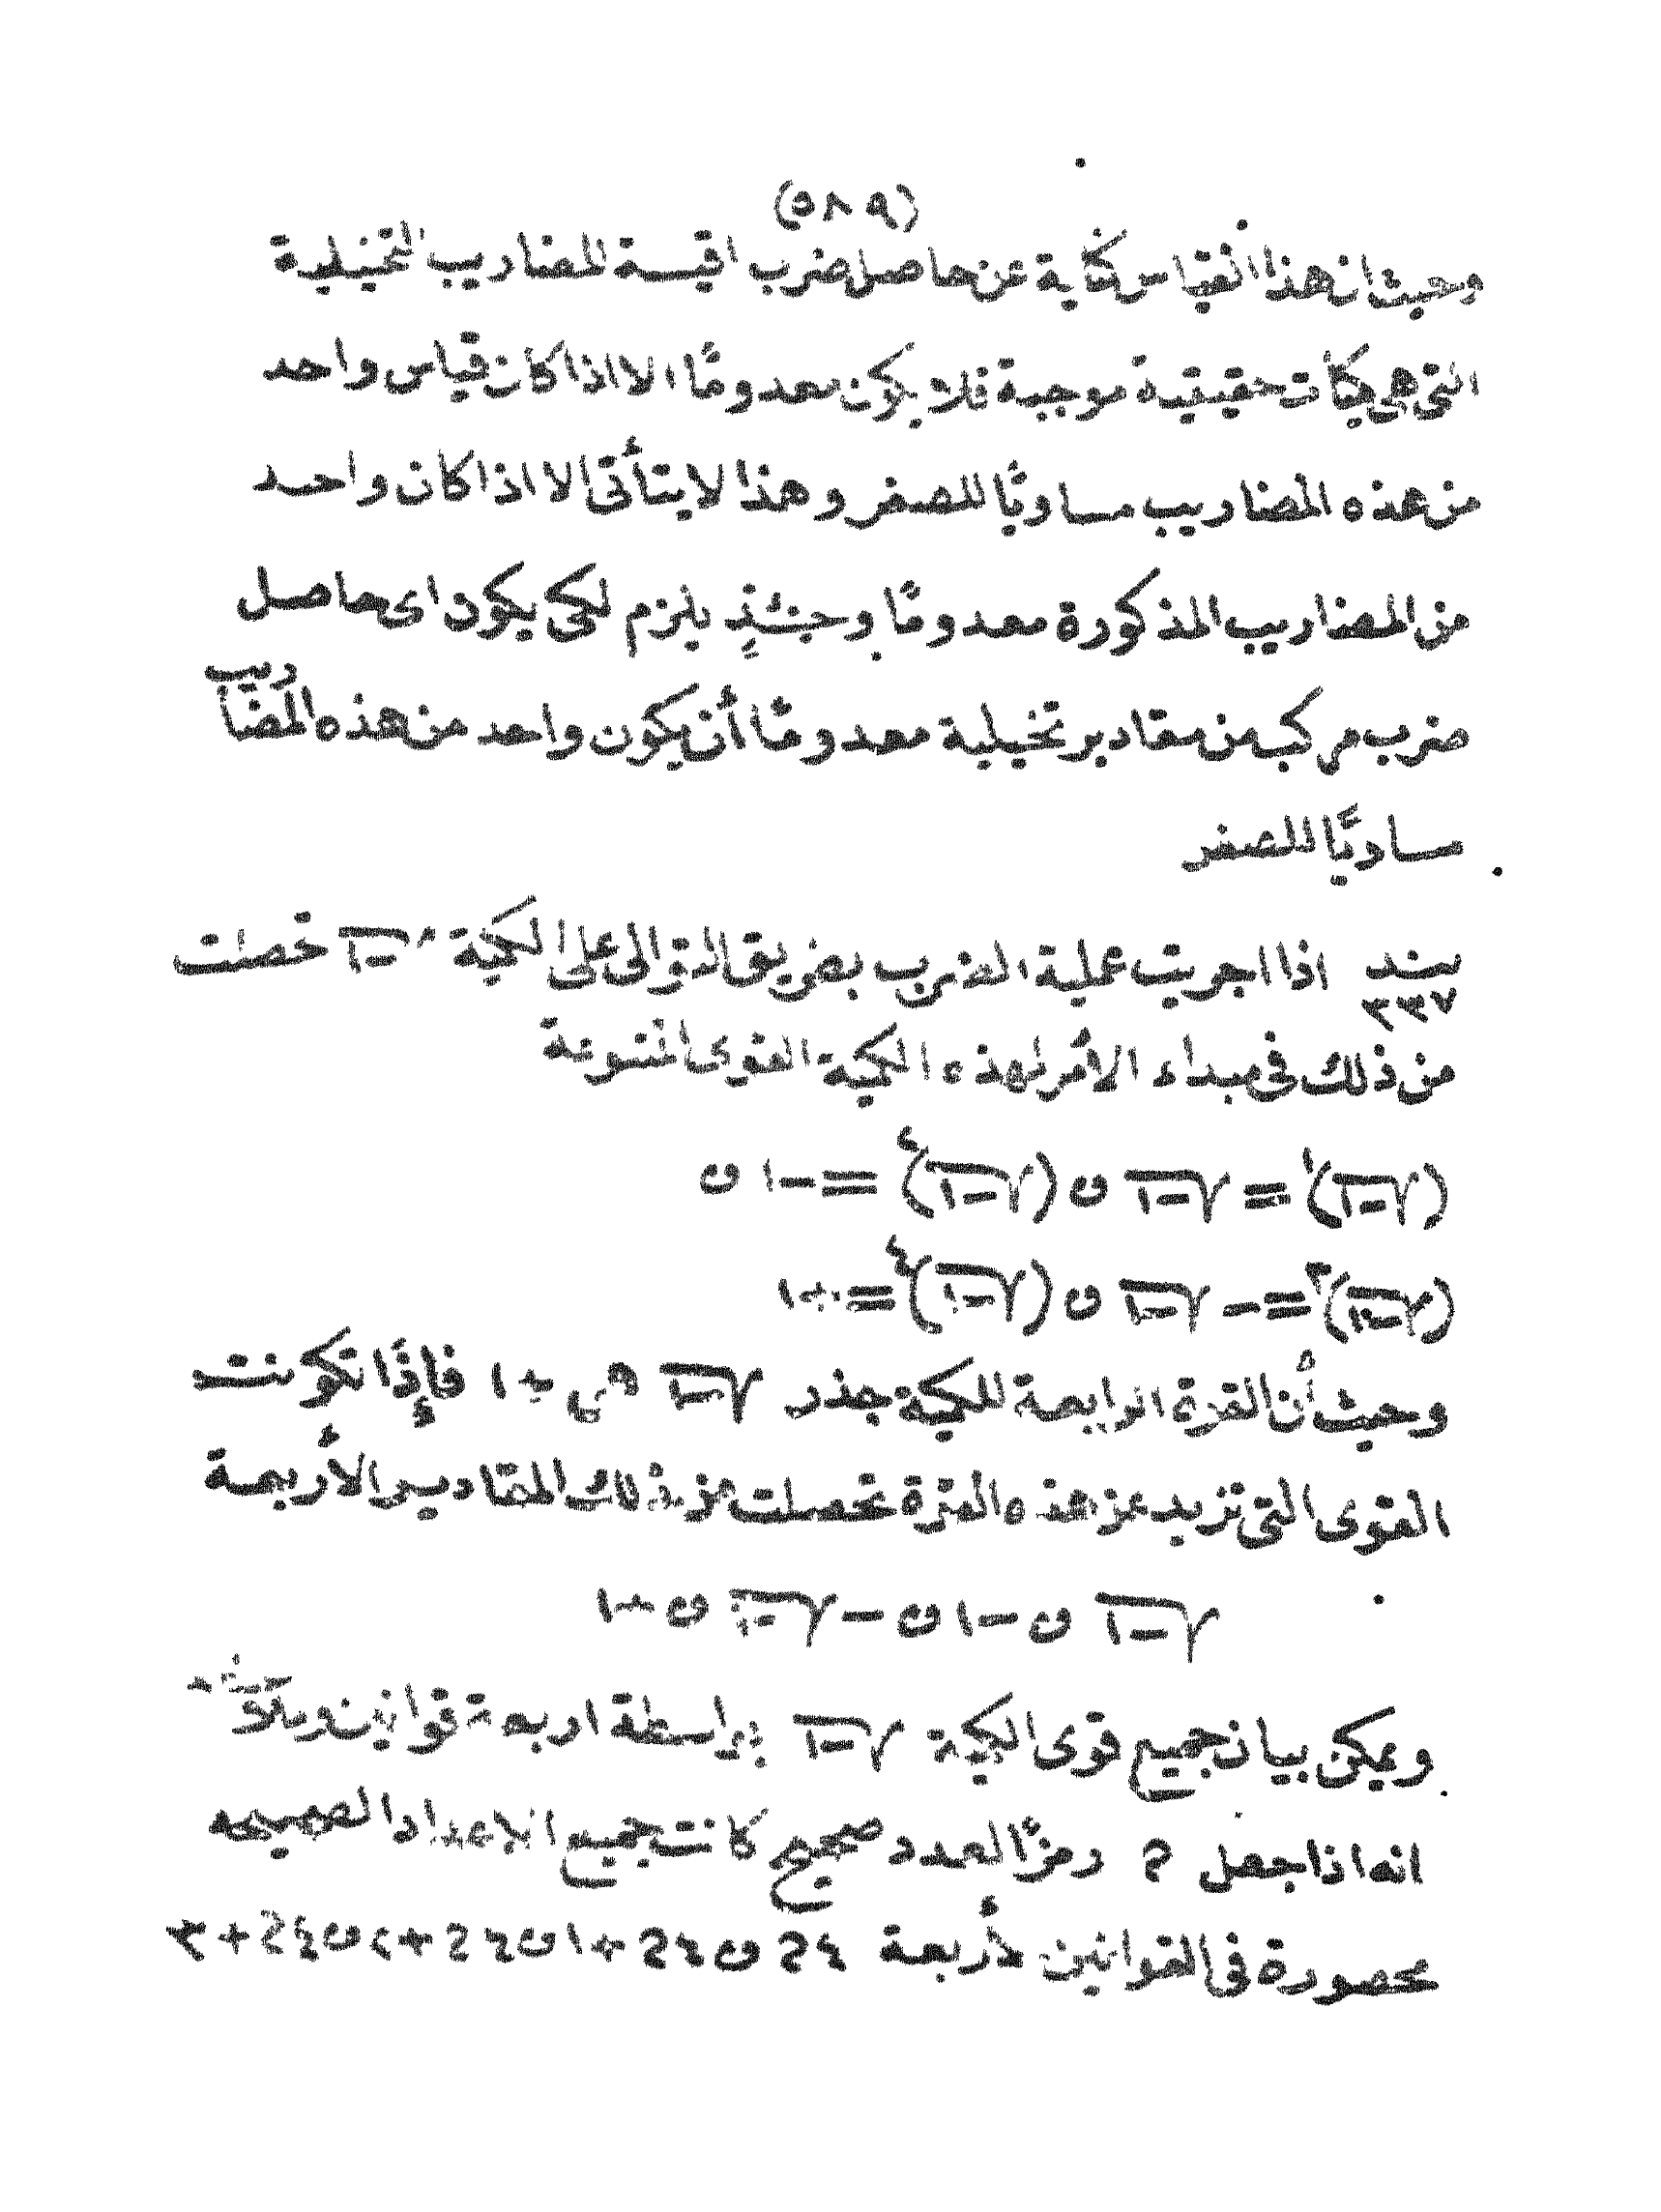 (٥٨٩)
وحيث ان هذا القياس كناية عن حاصل ضرب اقيسة المضاريب التخيلية
التى هى كميات حقيقية موجبة فلا يكون معدومًا الا اذا كان قياس واحد
من هذه المضاريب مساويًا للصفر وهذا لا يتأتى الا اذا كان واحد
من المضاريب المذكورة معدومًا وحينئذٍ يلزم لكى يكون اى حاصل
ضرب مركب من مقادير تخيلية معدومًا أن يكون واحد من هذه المضاريب
مساويًا للصفر
بند ٣٣٧ اذا اجريت عملية الضرب بطريق التوالى على الكمية √-١ تحصلت
من ذلك فى مبداء الأمر لهذه الكمية القوى المتنوعة
(√-١)^١ = √-١ و (√-١)^٢ = -١ و
(√-١)^٣ = -√-١ و (√-١)^٤ = +١
وحيث أن القوة الرابعة للكمية جذر √-١ هى +١ فإذا تكونت
القوى التى تزيد عن هذه القوة تحصلت من ذلك المقادير الأربعة
√-١ و -١ و -√-١ و +١
ويمكن بيان جميع قوى الكمية √-١ بواسطة اربعة قوانين وبلا
انه اذا جعل م رمزًا لعدد صحيح كانت جميع الاعداد الصحيحه
محصورة فى القوانين لأربعة ٤م و ٤م+١ و ٤م+٢ و ٤م+٣